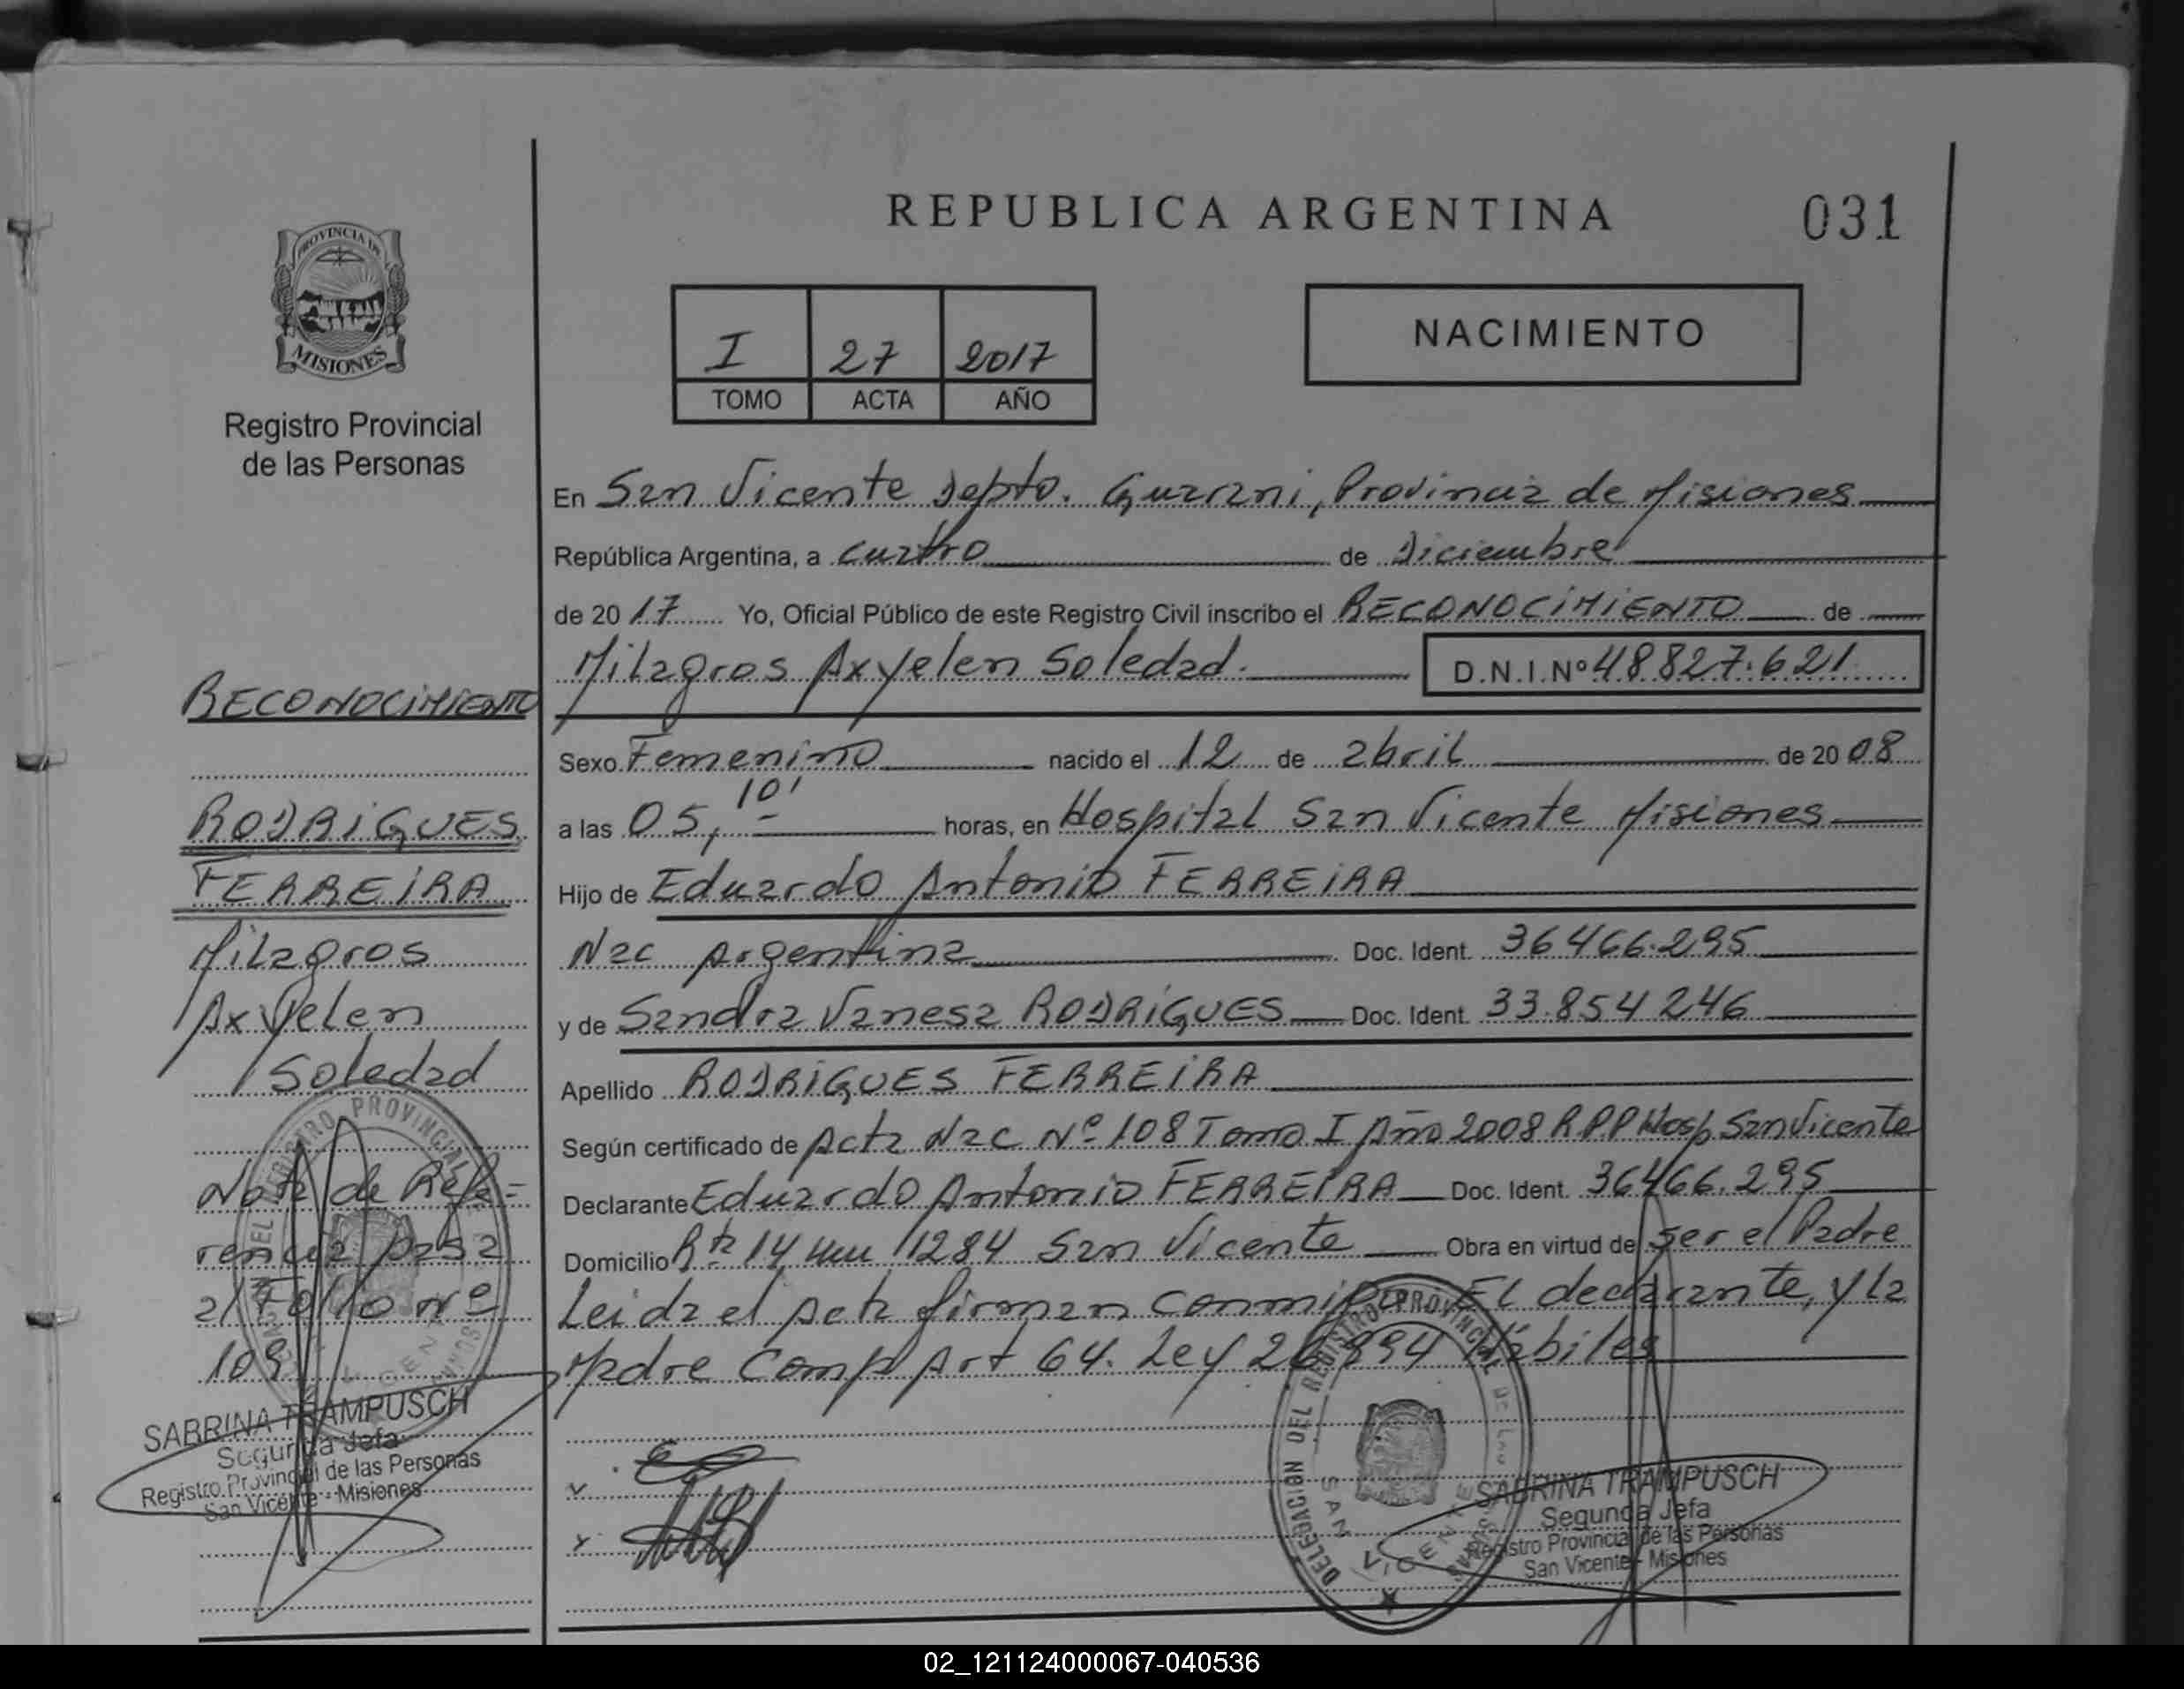 REPUBLICA ARGENTINA
031
PROVINCIA DE
MISIONES
Registro Provincial
de las Personas
I 27 2017
TOMO ACTA AÑO
NACIMIENTO
En San Vicente Depto. Guarani, Provincia de Misiones
República Argentina, a cuatro de Diciembre
de 20 17 Yo, Oficial Público de este Registro Civil inscribo el RECONOCIMIENTO de
Milagros Axyelen Soledad. D.N.I.Nº 48827.621
Sexo Femenino nacido el 12 de abril de 20 08
a las 05, 10' horas, en Hospital San Vicente Misiones
Hijo de Eduardo Antonio FERREIRA
Nac Argentina Doc. Ident. 36466.295
y de Sandra Vanesa RODRIGUES Doc. Ident. 33.854246
Apellido RODRIGUES FERREIRA
Según certificado de Acta Nac Nº 108 Tomo I Año 2008 R.P.P Hosp San Vicente
Declarante Eduardo Antonio FERREIRA Doc. Ident. 36466.295
Domicilio Rta 14 1284 San Vicente Obra en virtud de ser el Padre
Leida el Acta firman conmigo El declarante, y la
Madre Comp Art 64. Ley 26994 Hábiles
RECONOCIMIENTO
RODRIGUES
FERREIRA
Milagros
Axyelen
Soledad
Nota de Refe=
rencia pasa
al Folio Nº
109
SABRINA TRAMPUSCH
Segunda Jefa
Registro Provincial de las Personas
San Vicente - Misiones
DELEGACION DEL REGISTRO PROVINCIAL DE LAS PERSONAS
SAN VICENTE
SABRINA TRAMPUSCH
Segunda Jefa
Registro Provincial de las Personas
San Vicente - Misiones
02_121124000067-040536